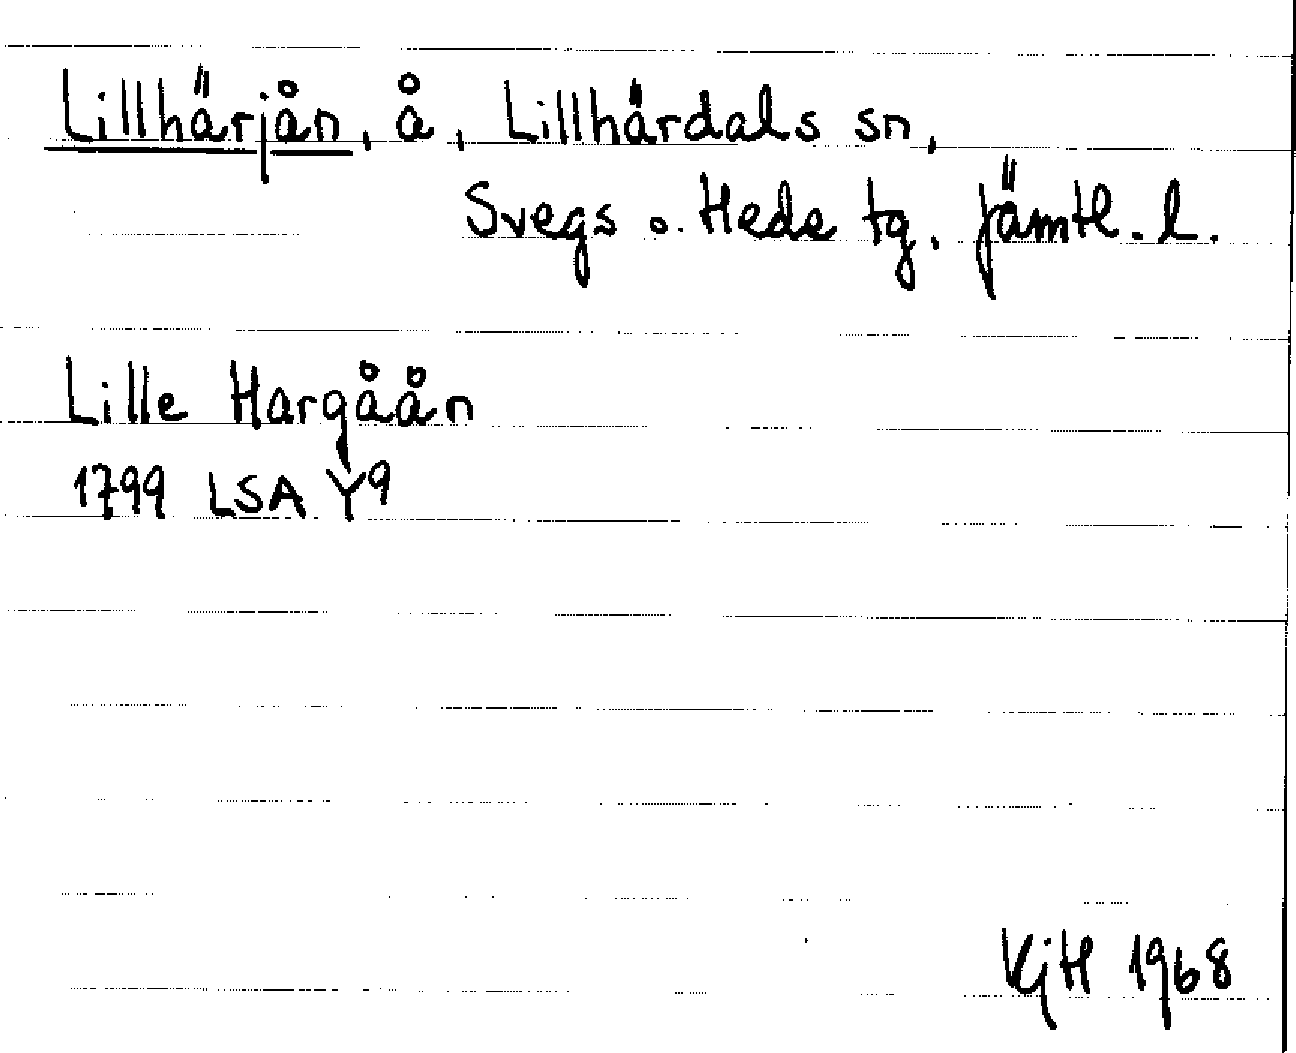 Lillhärjån, å, Lillhärdals sn,
Svegs o. Heds tg. Jämtl. l.
Lille Hargåån
1799 LSA Y9
KjH 1968